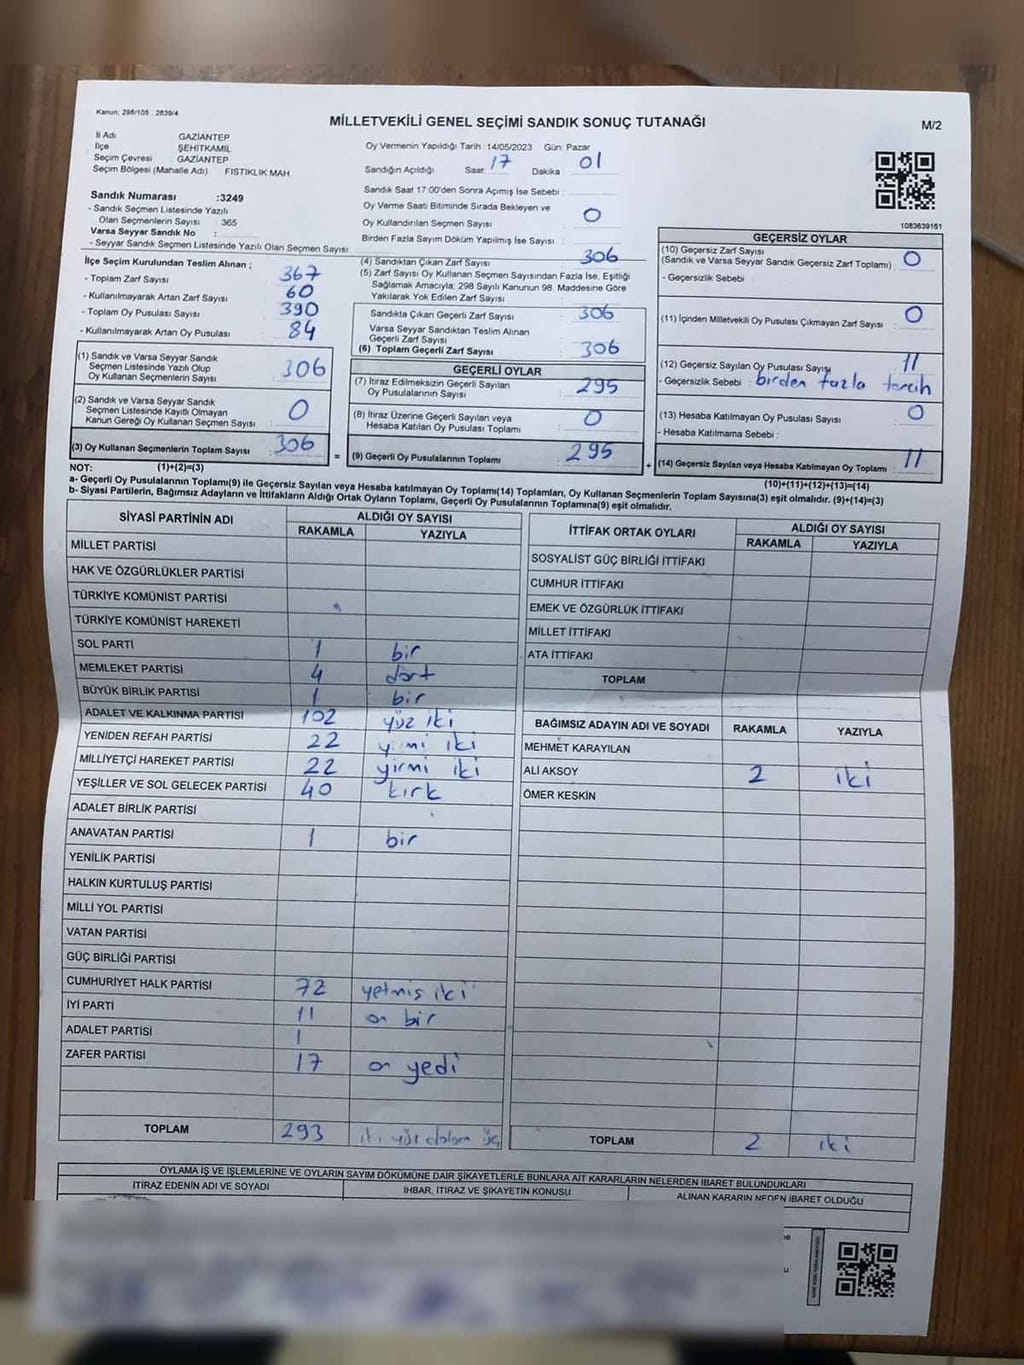 Kanun: 298/105 . 2839/4
MİLLETVEKİLİ GENEL SEÇİMİ SANDIK SONUÇ TUTANAĞI
M/2
İl Adı GAZİANTEP
İlçe ŞEHİTKAMİL
Seçim Çevresi GAZİANTEP
Seçim Bölgesi (Mahalle Adı) : FISTIKLIK MAH.
Oy Vermenin Yapıldığı Tarih : 14/05/2023 Gün: Pazar
Sandığın Açıldığı Saat: 17 Dakika 01
Sandık Saat 17:00'den Sonra Açımış İse Sebebi :
Oy Verme Saati Bitiminde Sırada Bekleyen ve
Oy Kullandırılan Seçmen Sayısı : 0
Birden Fazla Sayım Döküm Yapılmış İse Sayısı :
1083639161
Sandık Numarası :3249
- Sandık Seçmen Listesinde Yazılı
Olan Seçmenlerin Sayısı : 365
Varsa Seyyar Sandık No :
- Seyyar Sandık Seçmen Listesinde Yazılı Olan Seçmen Sayısı:
İlçe Seçim Kurulundan Teslim Alınan ;
- Toplam Zarf Sayısı : 367
- Kullanılmayarak Artan Zarf Sayısı : 60
- Toplam Oy Pusulası Sayısı : 390
- Kullanılmayarak Artan Oy Pusulası : 84
(1) Sandık ve Varsa Seyyar Sandık
Seçmen Listesinde Yazılı Olup
Oy Kullanan Seçmenlerin Sayısı : 306
(2) Sandık ve Varsa Seyyar Sandık
Seçmen Listesinde Kayıtlı Olmayan
Kanun Gereği Oy Kullanan Seçmen Sayısı : 0
(3) Oy Kullanan Seçmenlerin Toplam Sayısı : 306
(4) Sandıktan Çıkan Zarf Sayısı : 306
(5) Zarf Sayısı Oy Kullanan Seçmen Sayısından Fazla İse, Eşitliği
Sağlamak Amacıyla; 298 Sayılı Kanunun 98. Maddesine Göre
Yakılarak Yok Edilen Zarf Sayısı :
Sandıkta Çıkan Geçerli Zarf Sayısı : 306
Varsa Seyyar Sandıktan Teslim Alınan
Geçerli Zarf Sayısı :
(6) Toplam Geçerli Zarf Sayısı : 306
GEÇERLİ OYLAR
(7) İtiraz Edilmeksizin Geçerli Sayılan
Oy Pusulalarının Sayısı : 295
(8) İtiraz Üzerine Geçerli Sayılan veya
Hesaba Katılan Oy Pusulası Toplamı : 0
= (9) Geçerli Oy Pusulalarının Toplamı : 295
GEÇERSİZ OYLAR
(10) Geçersiz Zarf Sayısı
(Sandık ve Varsa Seyyar Sandık Geçersiz Zarf Toplamı) : 0
- Geçersizlik Sebebi :
(11) İçinden Milletvekili Oy Pusulası Çıkmayan Zarf Sayısı : 0
(12) Geçersiz Sayılan Oy Pusulası Sayısı : 11
- Geçersizlik Sebebi : birden fazla tercih
(13) Hesaba Katılmayan Oy Pusulası Sayısı : 0
- Hesaba Katılmama Sebebi :
+ (14) Geçersiz Sayılan veya Hesaba Katılmayan Oy Toplamı : 11
NOT: (1)+(2)=(3)
(10)+(11)+(12)+(13)=(14)
a- Geçerli Oy Pusulalarının Toplamı(9) ile Geçersiz Sayılan veya Hesaba katılmayan Oy Toplamı(14) Toplamları, Oy Kullanan Seçmenlerin Toplam Sayısına(3) eşit olmalıdır. (9)+(14)=(3)
b- Siyasi Partilerin, Bağımsız Adayların ve İttifakların Aldığı Ortak Oyların Toplamı, Geçerli Oy Pusulalarının Toplamına(9) eşit olmalıdır.
SİYASİ PARTİNİN ADI ALDIĞI OY SAYISI
RAKAMLA YAZIYLA
MİLLET PARTİSİ
HAK VE ÖZGÜRLÜKLER PARTİSİ
TÜRKİYE KOMÜNİST PARTİSİ
TÜRKİYE KOMÜNİST HAREKETİ
SOL PARTİ 1 bir
MEMLEKET PARTİSİ 4 dört
BÜYÜK BİRLİK PARTİSİ 1 bir
ADALET VE KALKINMA PARTİSİ 102 yüz iki
YENİDEN REFAH PARTİSİ 22 yirmi iki
MİLLİYETÇİ HAREKET PARTİSİ 22 yirmi iki
YEŞİLLER VE SOL GELECEK PARTİSİ 40 kırk
ADALET BİRLİK PARTİSİ
ANAVATAN PARTİSİ 1 bir
YENİLİK PARTİSİ
HALKIN KURTULUŞ PARTİSİ
MİLLİ YOL PARTİSİ
VATAN PARTİSİ
GÜÇ BİRLİĞİ PARTİSİ
CUMHURİYET HALK PARTİSİ 72 yetmiş iki
İYİ PARTİ 11 on bir
ADALET PARTİSİ 1
ZAFER PARTİSİ 17 on yedi
TOPLAM 293 iki yüz doksan üç
İTTİFAK ORTAK OYLARI ALDIĞI OY SAYISI
RAKAMLA YAZIYLA
SOSYALİST GÜÇ BİRLİĞİ İTTİFAKI
CUMHUR İTTİFAKI
EMEK VE ÖZGÜRLÜK İTTİFAKI
MİLLET İTTİFAKI
ATA İTTİFAKI
TOPLAM
BAĞIMSIZ ADAYIN ADI VE SOYADI RAKAMLA YAZIYLA
MEHMET KARAYILAN
ALİ AKSOY 2 iki
ÖMER KESKİN
TOPLAM 2 iki
OYLAMA İŞ VE İŞLEMLERİNE VE OYLARIN SAYIM DÖKÜMÜNE DAİR ŞİKAYETLERLE BUNLARA AİT KARARLARIN NELERDEN İBARET BULUNDUKLARI
İTİRAZ EDENİN ADI VE SOYADI İHBAR, İTİRAZ VE ŞİKAYETİN KONUSU ALINAN KARARIN NEDEN İBARET OLDUĞU